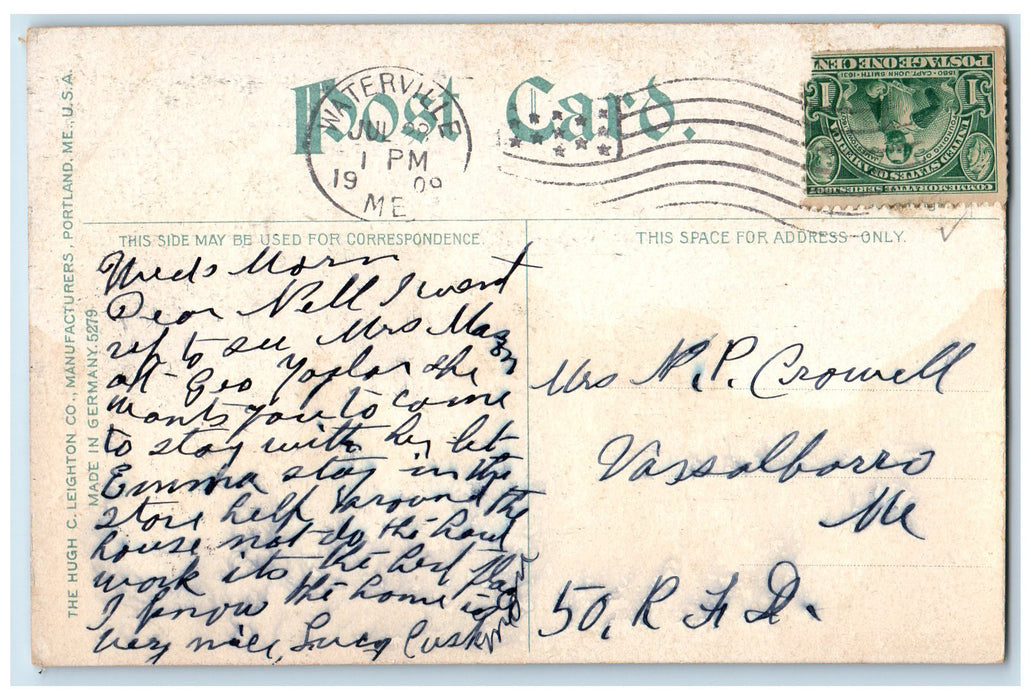 Post Card.
WATERVILLE
JUL 22
1 PM
1909
ME
POSTAGE ONE CENT
1580 · CAPT. JOHN SMITH · 1631
1 1
UNITED STATES OF AMERICA
COMMEMORATIVE SERIES, 1907
THIS SIDE MAY BE USED FOR CORRESPONDENCE.
THIS SPACE FOR ADDRESS ONLY.
THE HUGH C. LEIGHTON CO., MANUFACTURERS, PORTLAND, ME., U.S.A.
MADE IN GERMANY. 5279.
Weds Morn
Dear Nell I went
up to see Mrs Mason
at Geo Taylor she
wants you to come
to stay with her let
Emma stay in the
store help around the
house not do the hard
work its the best place
I know the home is
very nice, Lucy Cushman
Mrs N. P. Crowell
Vassalborro
Me
50, R F D.